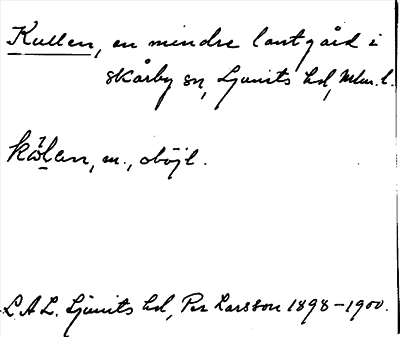 Kullen, en mindre lantgård i
Skårby sn, Ljunits hd, Mlm. l.
kålen, m., oböjl.
L.A.L. Ljunits hd, Per Larsson 1898-1900.